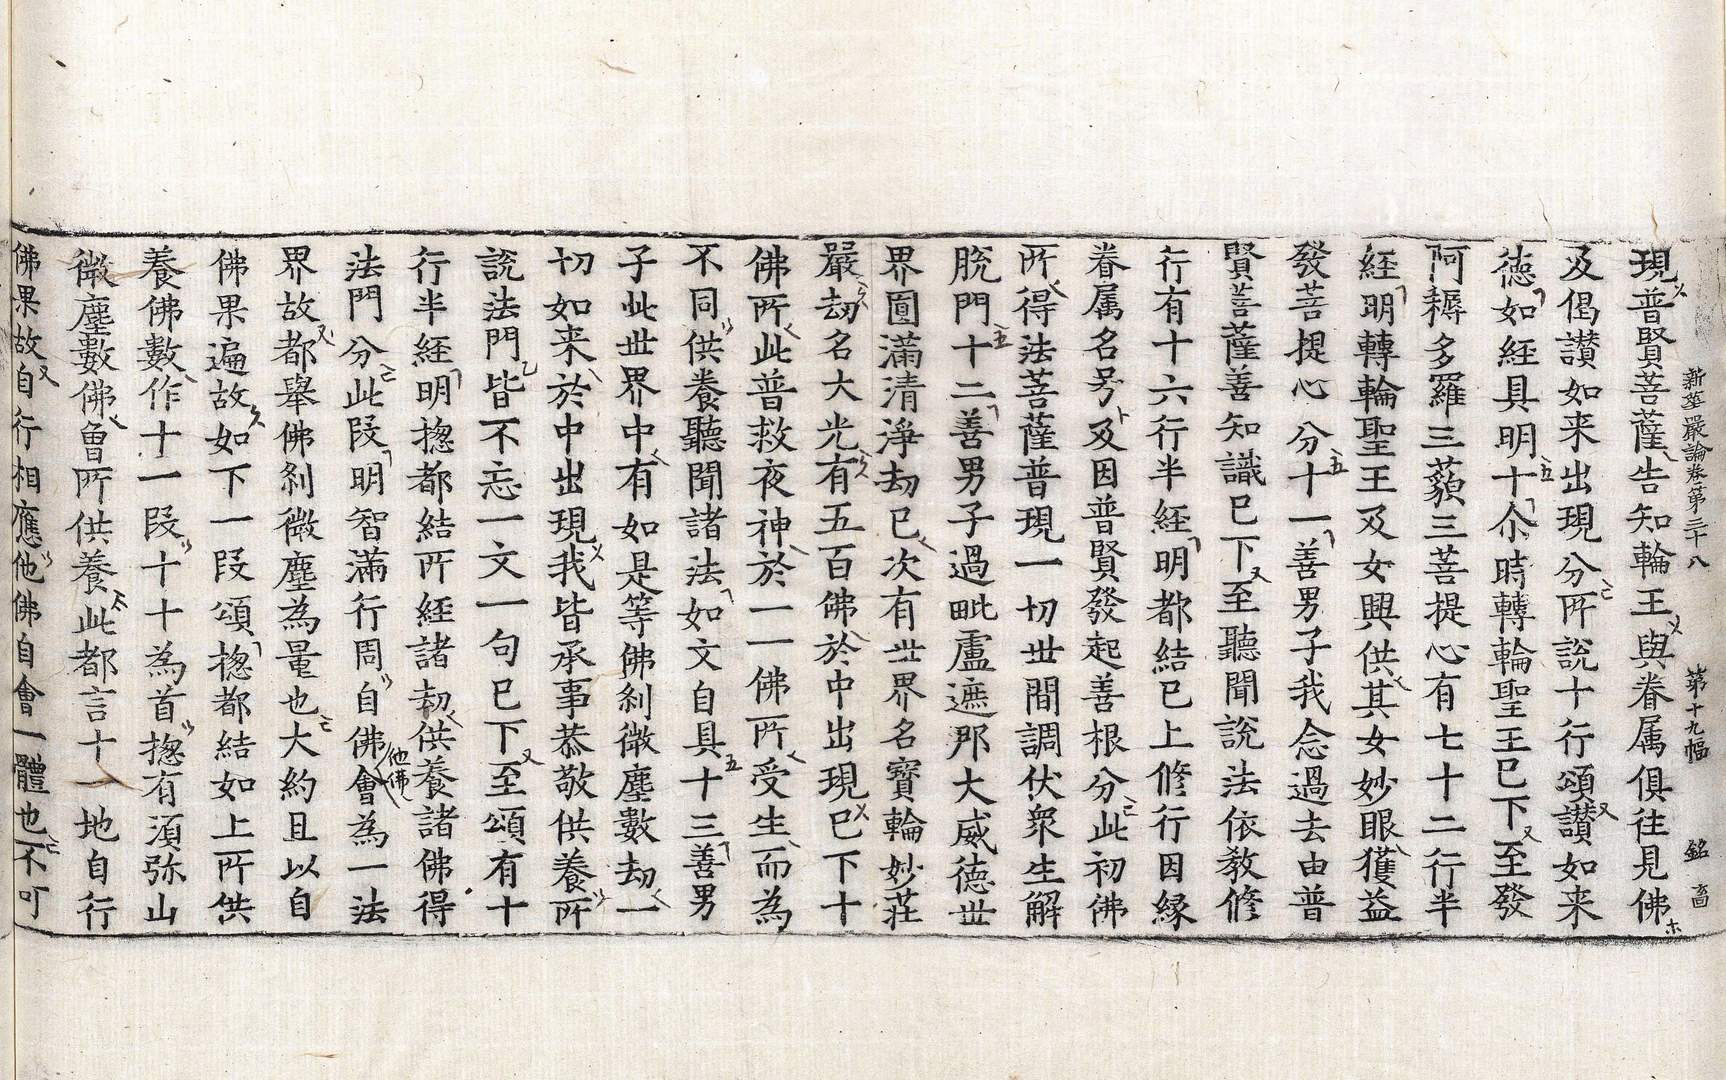 新華嚴論卷第三十八 第十九幅 銘 畗
現普賢菩薩告知輪王與眷属俱往見佛
及偈讃如来出現分所說十行頌讃如来
徳如經具明十尒時轉輪聖王巳下至發
阿耨多羅三藐三菩提心有七十二行半
經明轉輪聖王及女興供其女妙眼獲益
發菩提心分十一善男子我念過去由普
賢菩薩善知識巳下至聽聞說法依教修
行有十六行半經明都結巳上修行因縁
眷属名号及因普賢發起善根分此初佛
所得法菩薩普現一切世間調伏衆生解
脫門十二善男子過毗盧遮那大威徳世
界圓滿清淨劫巳次有世界名寳輪妙莊
嚴劫名大光有五百佛於中出現巳下十
佛所此普救夜神於一一佛所受生而為
不同供養聽聞諸法如文自具十三善男
子此世界中有如是等佛刹微塵數劫一
切如来於中出現我皆承事恭敬供養所
說法門皆不忘一文一句巳下至頌有十
行半經明揔都結所經諸劫供養諸佛得
法門分此段明智滿行周自佛會為一法
他佛
界故都舉佛刹微塵為量也大約且以自
佛果遍故如下一段頌揔都結如上所供
養佛數作十一段十十為首揔有湏弥山
微塵數佛魯所供養此都言十一地自行
佛果故自行相應他佛自會一體也不可